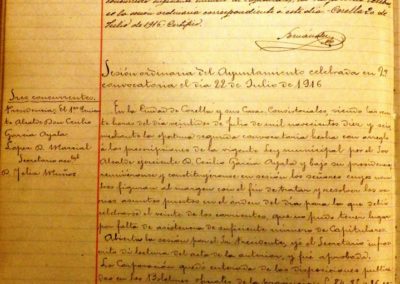 Julio de 1916. Certifico.
Sesion ordinaria del Ayuntamiento celebrada en 2ª
convocatoria el dia 22 de Julio de 1916
Sres concurrentes.
Presidencia, El 1er Teniente
Alcalde Don Cecilio
Garcia Ayala
Lopez D. Marcial
Secretario
D. Felix Muñoz
En la Ciudad de Corella y sus Casas Consistoriales siendo las
horas del dia veintidos de Julio de mil novecientos diez y seis
mediante la oportuna segunda convocatoria hecha con arreglo
á las prescripciones de la vigente Ley municipal por el Sor
Alcalde D. Cecilio Garcia Ayala y bajo su presidencia
reunieronse y constituyeronse en sesion los señores cuyos nombres
figuran al margen con el fin de tratar y resolver los varios
asuntos puestos en el orden del dia para la que debió
celebrarse el veinte de los corrientes, que no pudo tener lugar
por falta de asistencia de suficiente numero de Capitulares.
Abierta la sesion por el Sr Presidente, yo el Secretario
di lectura del acta de la anterior, y fué aprobada.
La Corporacion quedó enterada de las disposiciones publicadas
en los Boletines oficiales de la provincia